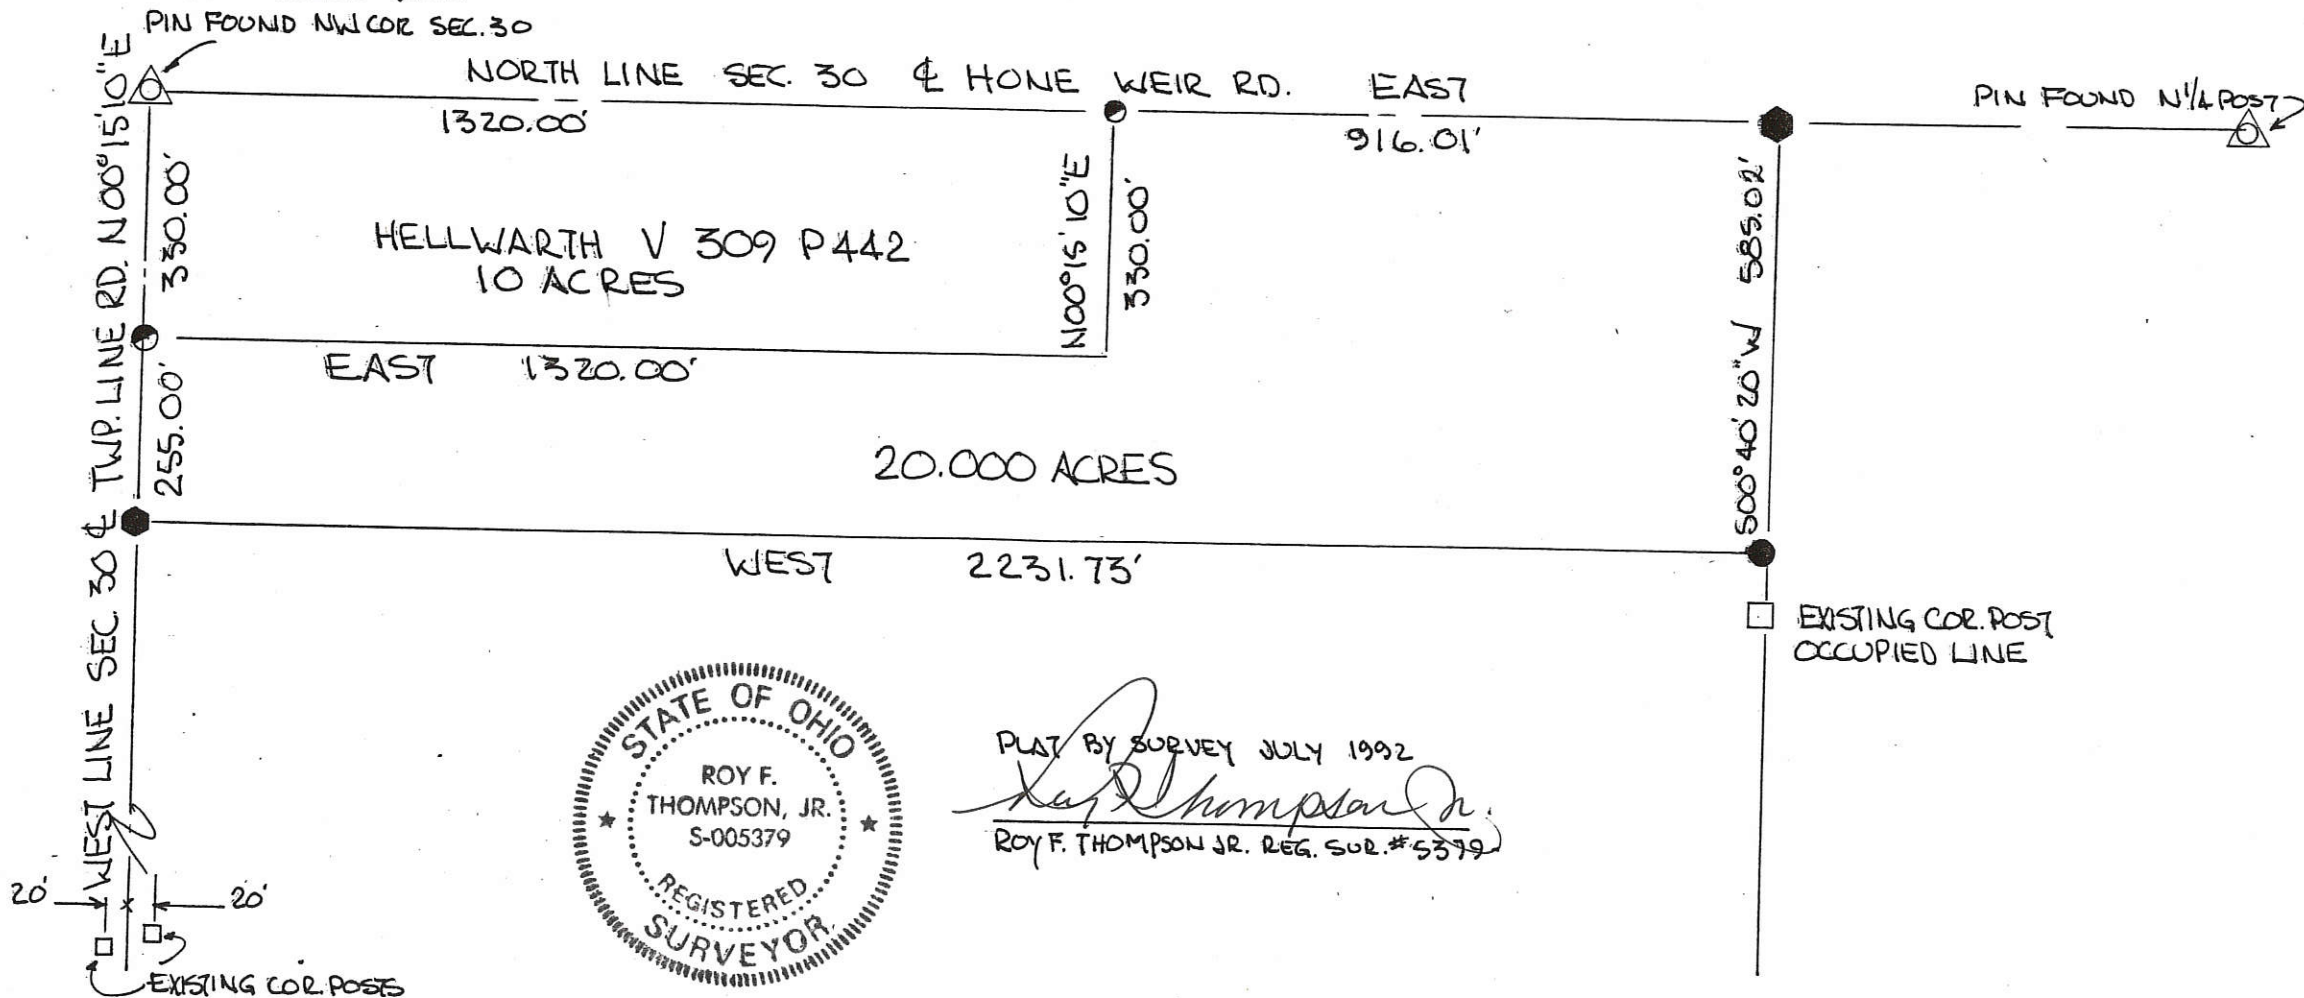 PIN FOUND NW COR SEC. 30
NORTH LINE SEC. 30 ℄ HONE WEIR RD. EAST
PIN FOUND N1/4 POST
1320.00'
916.01'
WEST LINE SEC 30 ℄ TWP. LINE RD. N00°15'10"E
330.00'
HELLWARTH V 309 P 442
10 ACRES
N00°15'10"E
330.00'
S00°40'20"W 585.02'
EAST 1320.00'
255.00'
20.000 ACRES
WEST 2231.73'
EXISTING COR. POST
OCCUPIED LINE
STATE OF OHIO
ROY F.
THOMPSON, JR.
S-005379
REGISTERED
SURVEYOR
PLAT BY SURVEY JULY 1992
Roy F Thompson Jr.
ROY F. THOMPSON JR. REG. SUR. #5379
20' 20'
EXISTING COR. POSTS